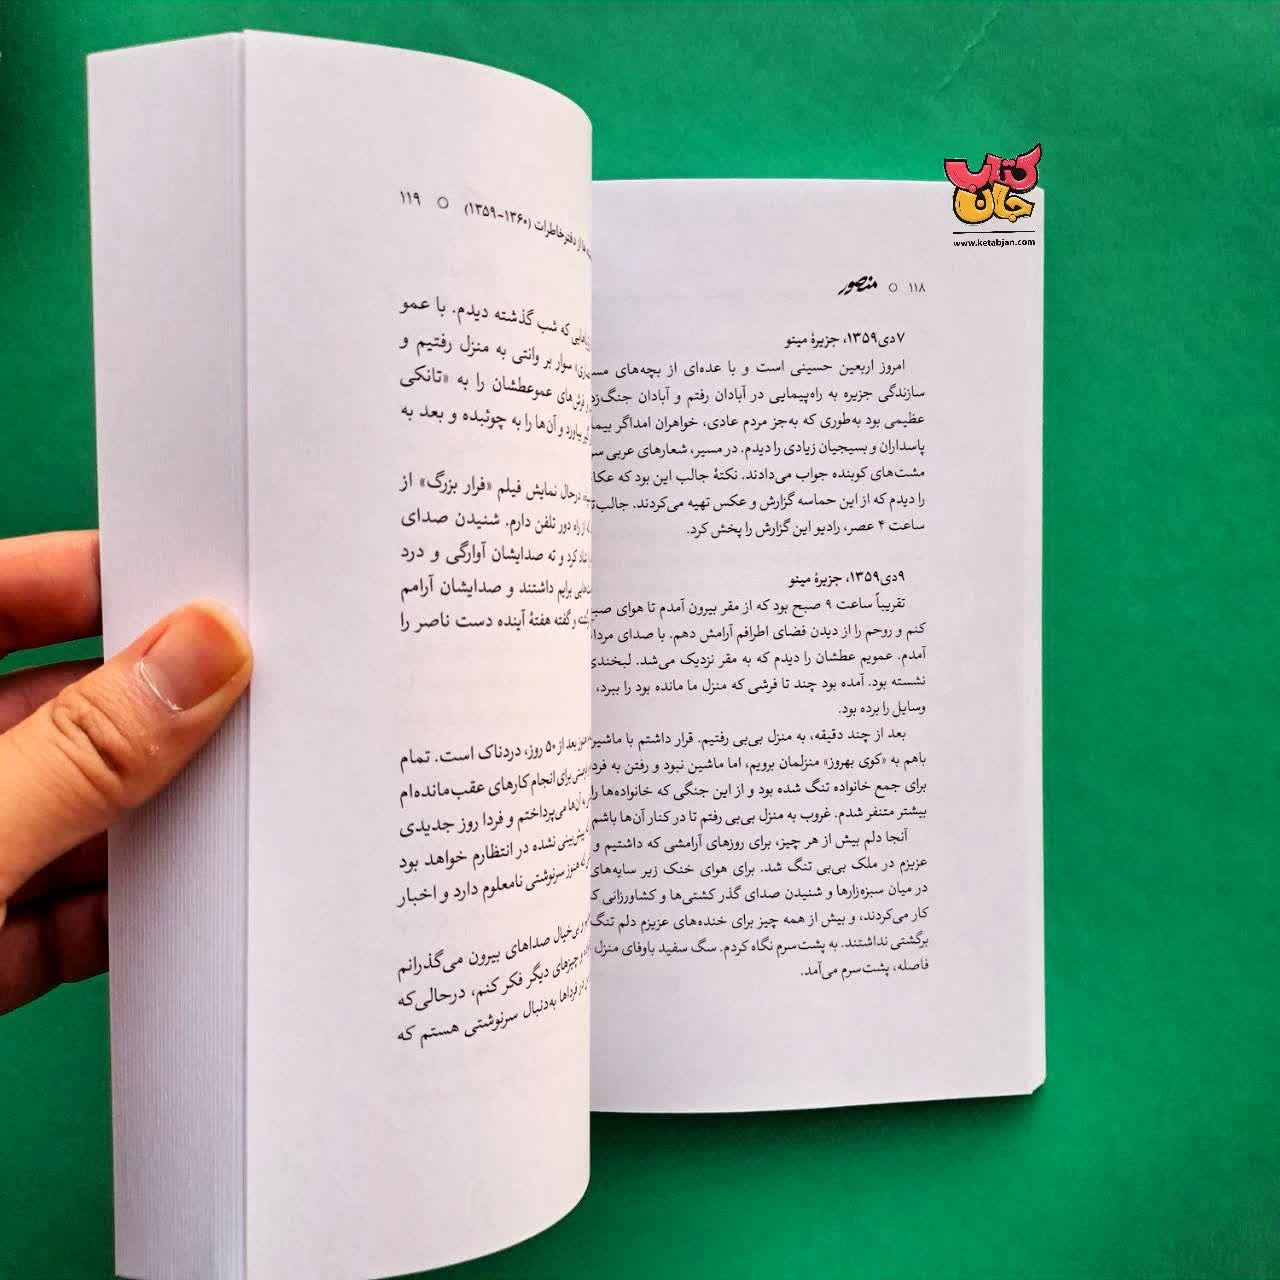 کتاب جان
www.ketabjan.com
۱۱۸ ○ منصور
۷دی۱۳۵۹، جزیرهٔ مینو
امروز اربعین حسینی است و با عده‌ای از بچه‌های
سازندگی جزیره به راه‌پیمایی در آبادان رفتم و آبادان
عظیمی بود به‌طوری که به‌جز مردم عادی، خواهران امدادگر
پاسداران و بسیجیان زیادی را دیدم. در مسیر، شعارهای عربی
مشت‌های کوبنده جواب می‌دادند. نکتهٔ جالب این بود که
را دیدم که از این حماسه گزارش و عکس تهیه می‌کردند.
ساعت ۴ عصر، رادیو این گزارش را پخش کرد.
۹دی۱۳۵۹، جزیرهٔ مینو
تقریباً ساعت ۹ صبح بود که از مقر بیرون آمدم تا هوای
کنم و روحم را از دیدن فضای اطرافم آرامش دهم. با صدای
آمدم. عمویم عطشان را دیدم که به مقر نزدیک می‌شد.
نشسته بود. آمده بود چند تا فرشی که منزل ما مانده بود را ببرد،
وسایل را برده بود.
بعد از چند دقیقه، به منزل بی‌بی رفتیم. قرار داشتم با ماشین
باهم به «کوی بهروز» منزلمان برویم، اما ماشین نبود و رفتن به
برای جمع خانواده تنگ شده بود و از این جنگی که خانواده‌ها را
بیشتر متنفر شدم. غروب به منزل بی‌بی رفتم تا در کنار آن‌ها باشم
آنجا دلم بیش از هر چیز، برای روزهای آرامشی که داشتیم و
عزیزم در ملک بی‌بی تنگ شد. برای هوای خنک زیر سایه‌های
در میان سبزه‌زارها و شنیدن صدای گذر کشتی‌ها و کشاورزانی
کار می‌کردند، و بیش از همه چیز برای خنده‌های عزیزم دلم تنگ
برگشتی نداشتند. به پشت‌سرم نگاه کردم. سگ سفید باوفای منزل
فاصله، پشت‌سرم می‌آمد.
از دفتر خاطرات (۱۳۶۰-۱۳۵۹) ○ ۱۱۹
که شب گذشته دیدم. با عمو
سوار بر وانتی به منزل رفتیم و
فرش‌های عموعطشان را به «تانکی
بیاورد و آن‌ها را به چوئبده و بعد به
درحال نمایش فیلم «فرار بزرگ» از
از راه دور تلفن دارم. شنیدن صدای
شاد کرد و ته صدایشان آوارگی و درد
برایم داشتند و صدایشان آرامم
و گفته هفتهٔ آینده دست ناصر را
هنوز بعد از ۵۰ روز، دردناک است. تمام
برای انجام کارهای عقب‌مانده‌ام
به آن‌ها می‌پرداختم و فردا روز جدیدی
پیش‌بینی نشده در انتظارم خواهد بود
هنوز سرنوشتی نامعلوم دارد و اخبار
بی‌خیال صداهای بیرون می‌گذرانم
و چیزهای دیگر فکر کنم، درحالی‌که
در فرداها به‌دنبال سرنوشتی هستم که